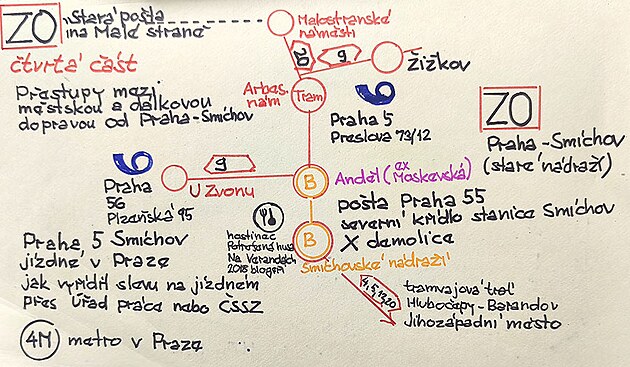 ZO
Stará pošta
na Malé straně
čtvrtá část
Přestupy mezi
městskou a dálkovou
dopravou od Praha-Smíchov
Malostranské
náměstí
20
9
Žižkov
Arbes.
nám.
Tram
Praha 5
Preslova 73/12
ZO
Praha-Smíchov
(staré nádraží)
Praha
56
Plzeňská 95
9
U Zvonu
B
Anděl (ex
Moskevská)
pošta Praha 55
severní křídlo stanice Smíchov
X demolice
hostinec
Potrefená husa
Na Verandách
2018 blogeři
B
Smíchovské nádraží
Praha 5 Smíchov
jízdné v Praze
jak vyřídil slevu na jízdném
přes Úřad práce nebo ČSSZ
4M
metro v Praze
tramvajová trať
Hlubočepy-Barrandov
Jihozápadní město